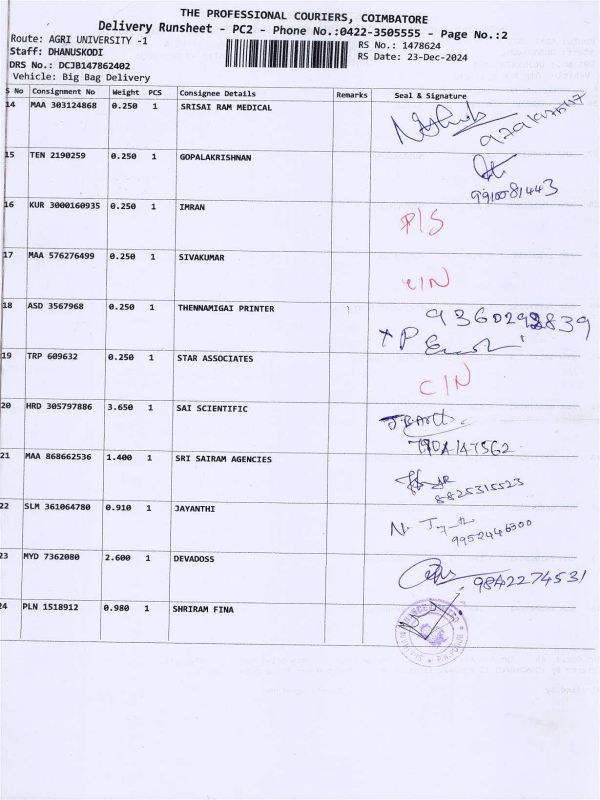 THE PROFESSIONAL COURIERS, COIMBATORE
Delivery Runsheet - PC2 - Phone No.:0422-3505555 - Page No.:2
Route: AGRI UNIVERSITY -1
RS No.: 1478624
Staff: DHANUSKODI
RS Date: 23-Dec-2024
DRS No.: DCJB147862402
Vehicle: Big Bag Delivery
S No Consignment No Weight PCS Consignee Details Remarks Seal & Signature
14 MAA 303124868 0.250 1 SRISAI RAM MEDICAL
15 TEN 2190259 0.250 1 GOPALAKRISHNAN
16 KUR 3000160935 0.250 1 IMRAN P/S
17 MAA 576276499 0.250 1 SIVAKUMAR
18 ASD 3567968 0.250 1 THENNAMIGAI PRINTER
19 TRP 609632 0.250 1 STAR ASSOCIATES C/N
20 HRD 305797886 3.650 1 SAI SCIENTIFIC
21 MAA 868662536 1.400 1 SRI SAIRAM AGENCIES
8825315523
22 SLM 361064780 0.910 1 JAYANTHI
23 MYD 7362080 2.600 1 DEVADOSS 9842274531
24 PLN 1518912 0.980 1 SHRIRAM FINA